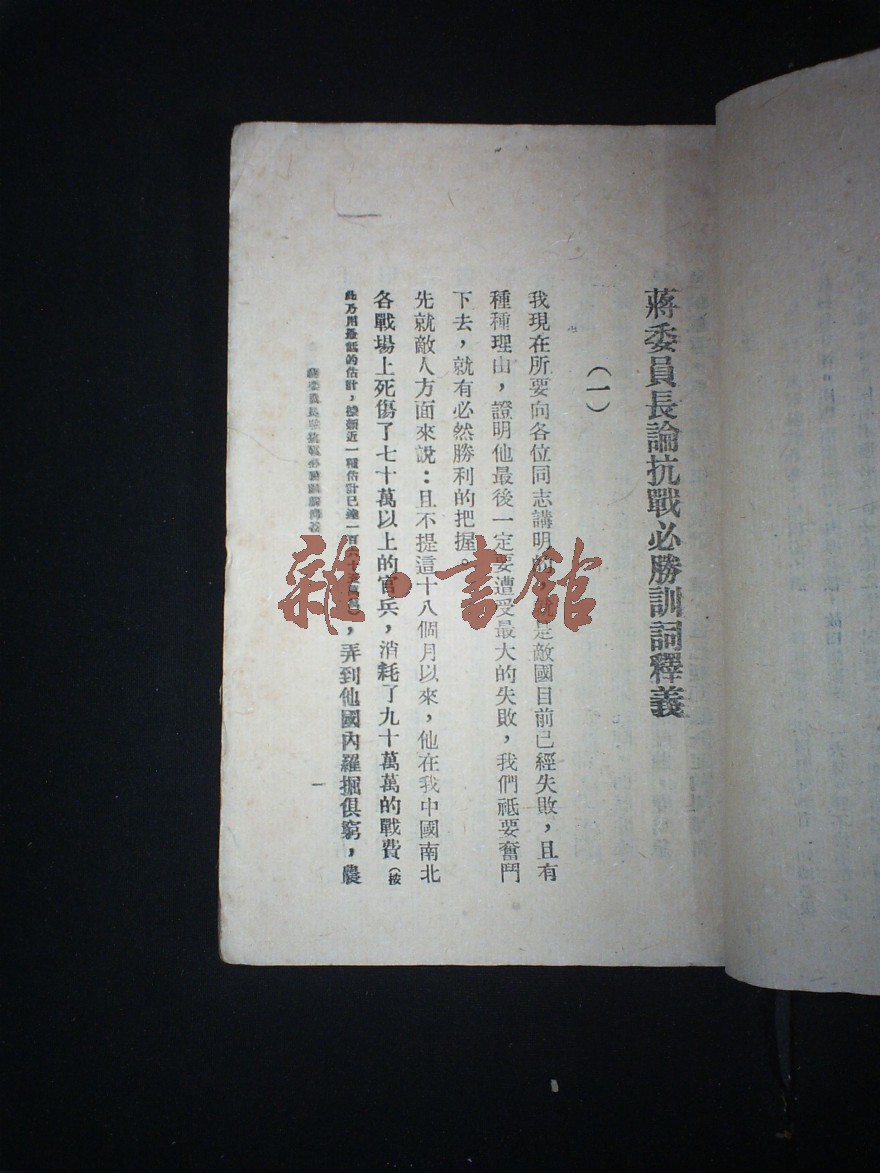 蔣委員長論抗戰必勝訓詞釋義
(一)
我現在所要向各位同志講明的,就是敵國目前已經失敗,且有
種種理由,證明他最後一定要遭受最大的失敗,我們祗要奮鬥
下去,就有必然勝利的把握。
先就敵人方面來說:且不提這十八個月以來,他在我中國南北
各戰場上死傷了七十萬以上的官兵,消耗了九十萬萬的戰費(按
此乃用最低的估計,據類近一種估計已達一百六十,弄到他國內羅掘俱窮,農
蔣委員長論抗戰必勝訓詞釋義
一
雜·書館